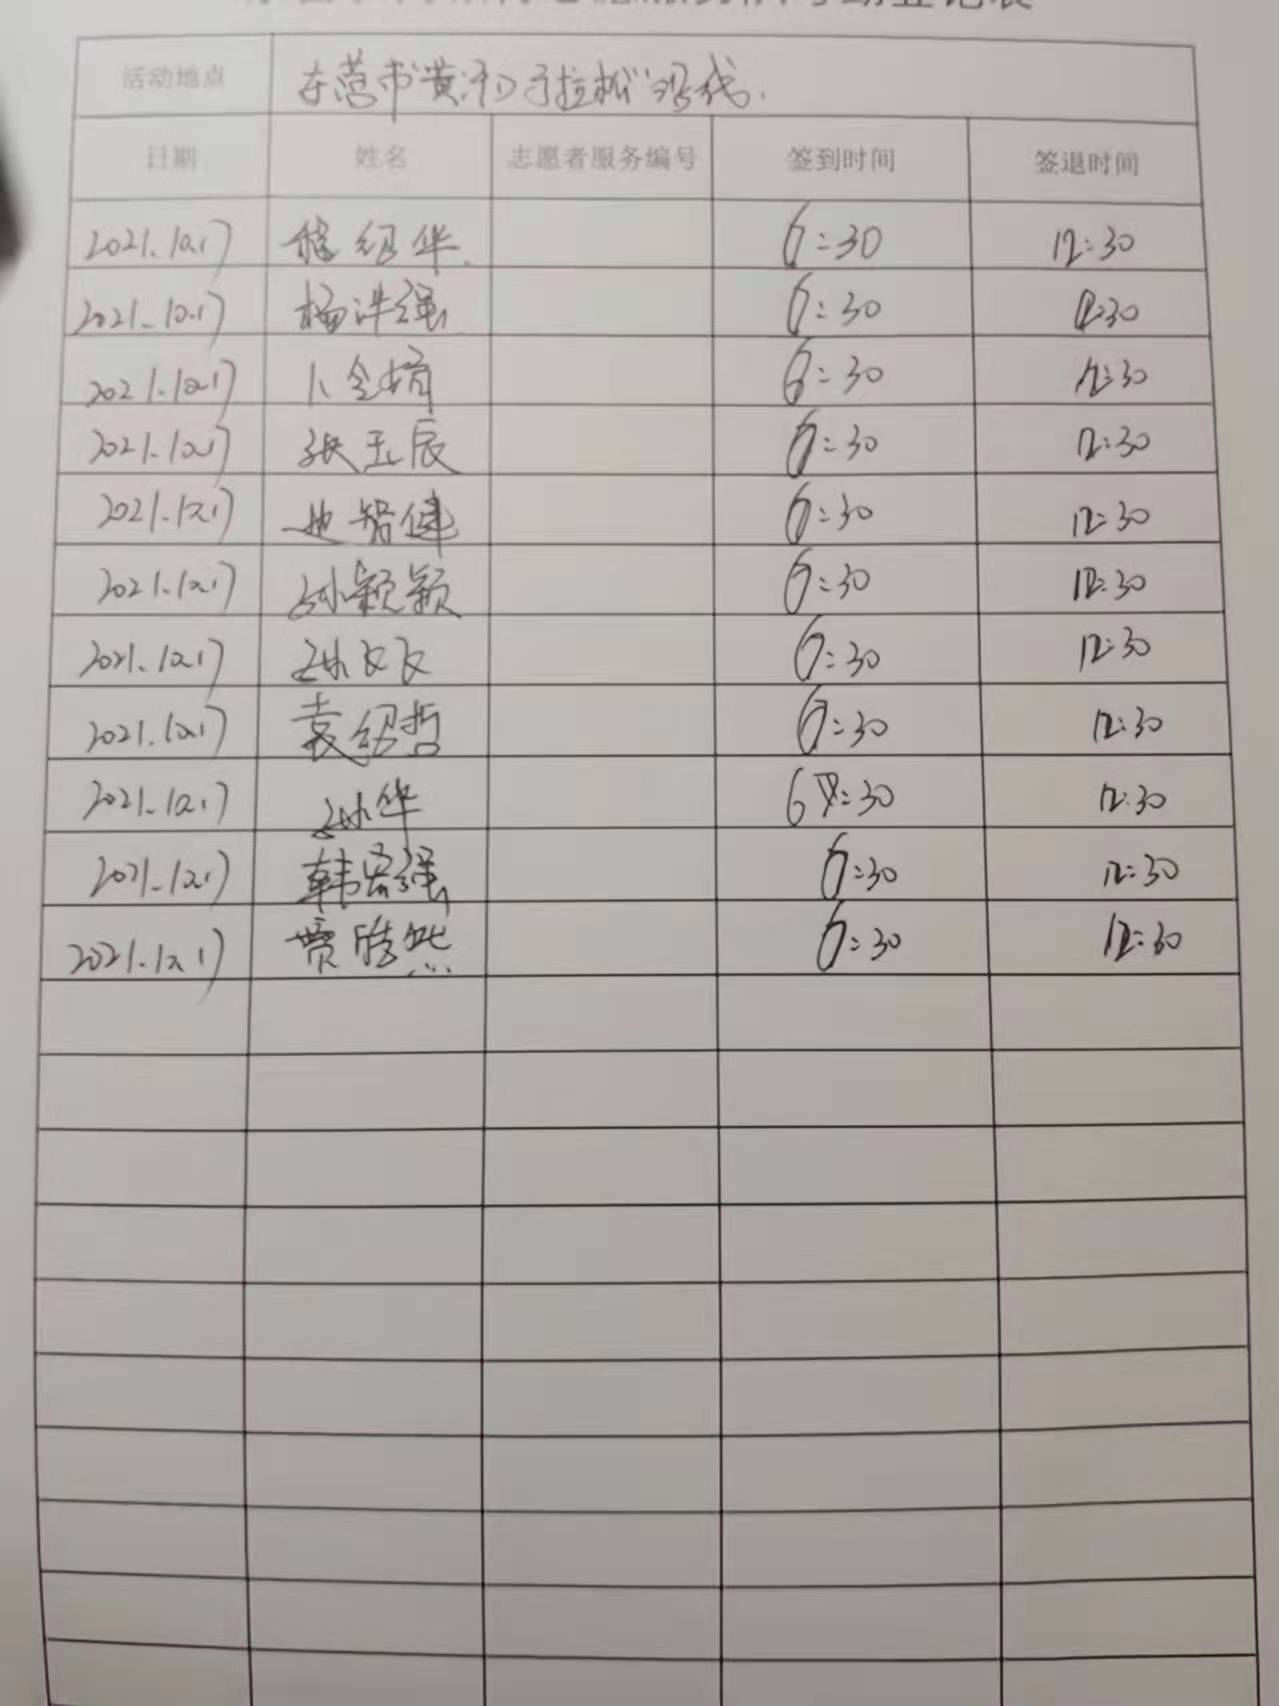 活动地点 东营市黄河口马拉松沿线.
日期 姓名 志愿者服务编号 签到时间 签退时间
2021.10.17 绍华 6:30 12:30
2021.10.17 杨洋强 6:30 12:30
2021.10.17 卜全婧 6:30 12:30
2021.10.17 张玉辰 6:30 12:30
2021.10.17 智健 6:30 12:30
2021.10.17 孙颖颖 6:30 12:30
2021.10.17 孙文文 6:30 12:30
2021.10.17 袁绍哲 6:30 12:30
2021.10.17 孙华 6:30 12:30
2021.10.17 韩宏强 6:30 12:30
2021.10.17 贾浩然 6:30 12:30